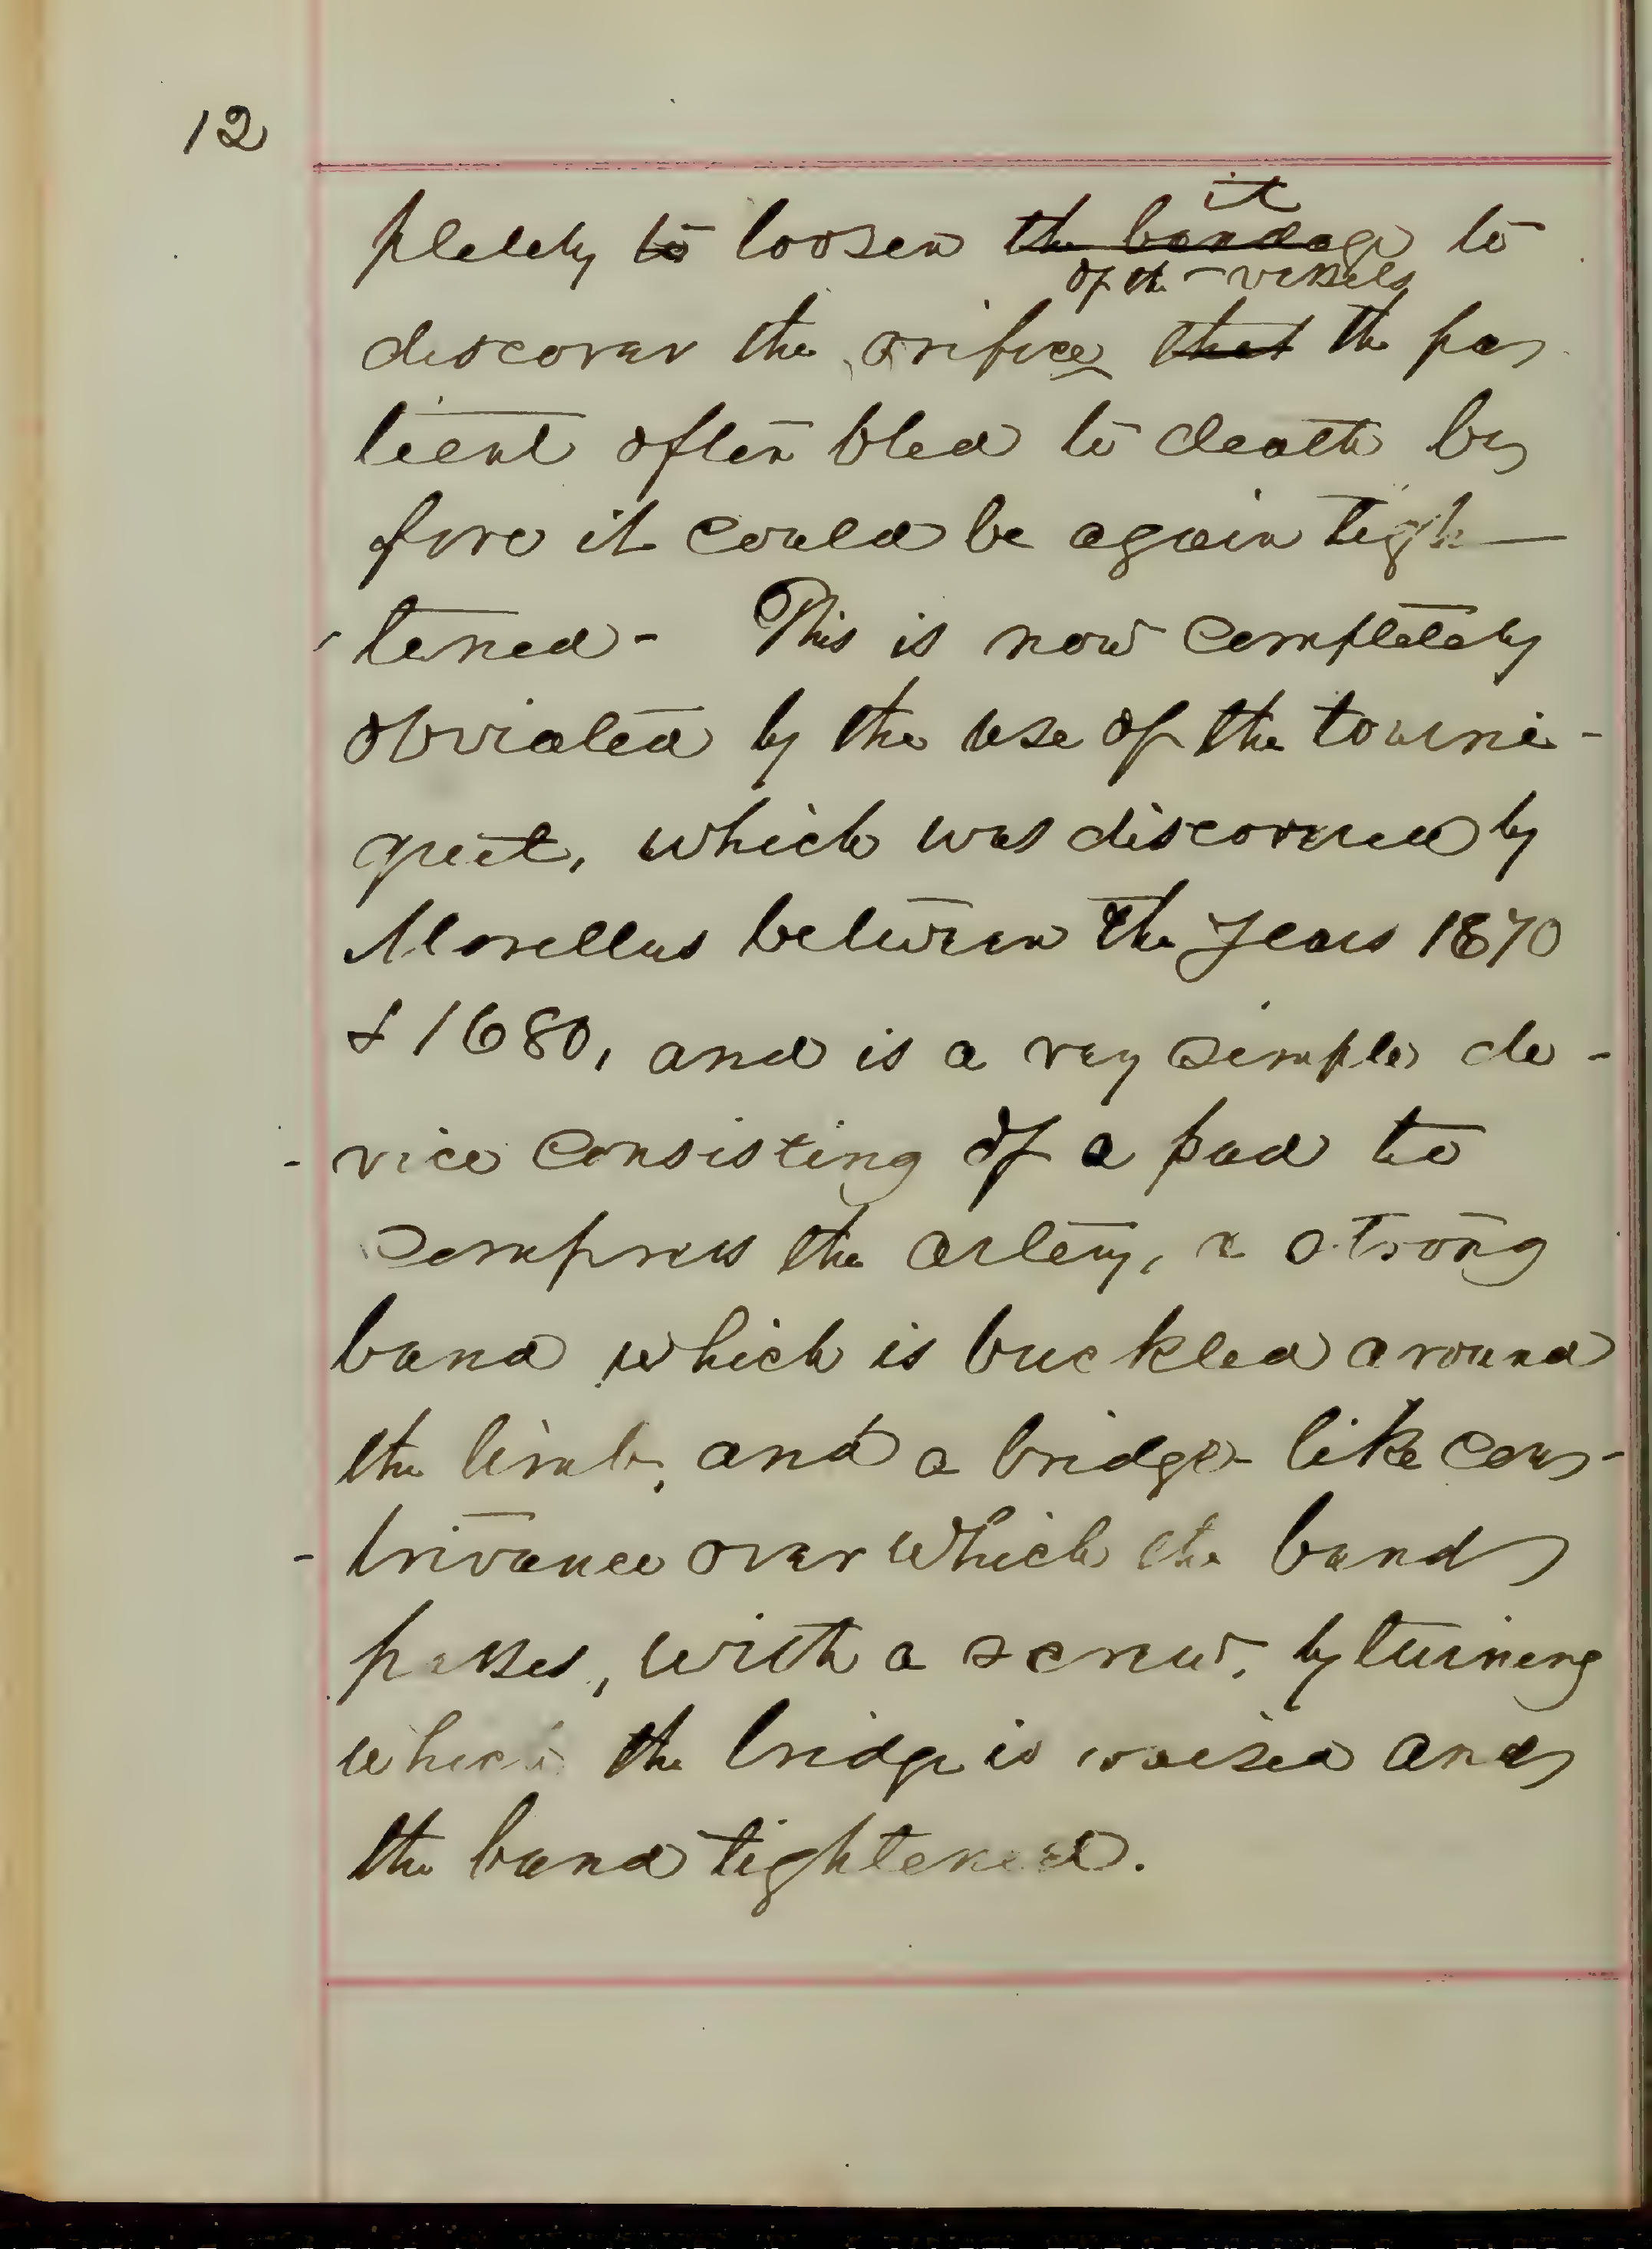 12
pletely to loosen the bandage it to
of the vessels
discover the orifice that the pa
tient often bled to death be
fore it could be again tigh-
tened - This is now completely
obviated by the use of the tourni-
quet, which was discovered by
Morellus between the years 1870
& 1680, and is a very simple de-
-vice consisting of a pad to
compress the artery, a strong
band which is buckled around
the limb, and a bridge-like con-
-trivance over which the band
passes, with a screw, by turning
which the bridge is raised and
the band tightened.